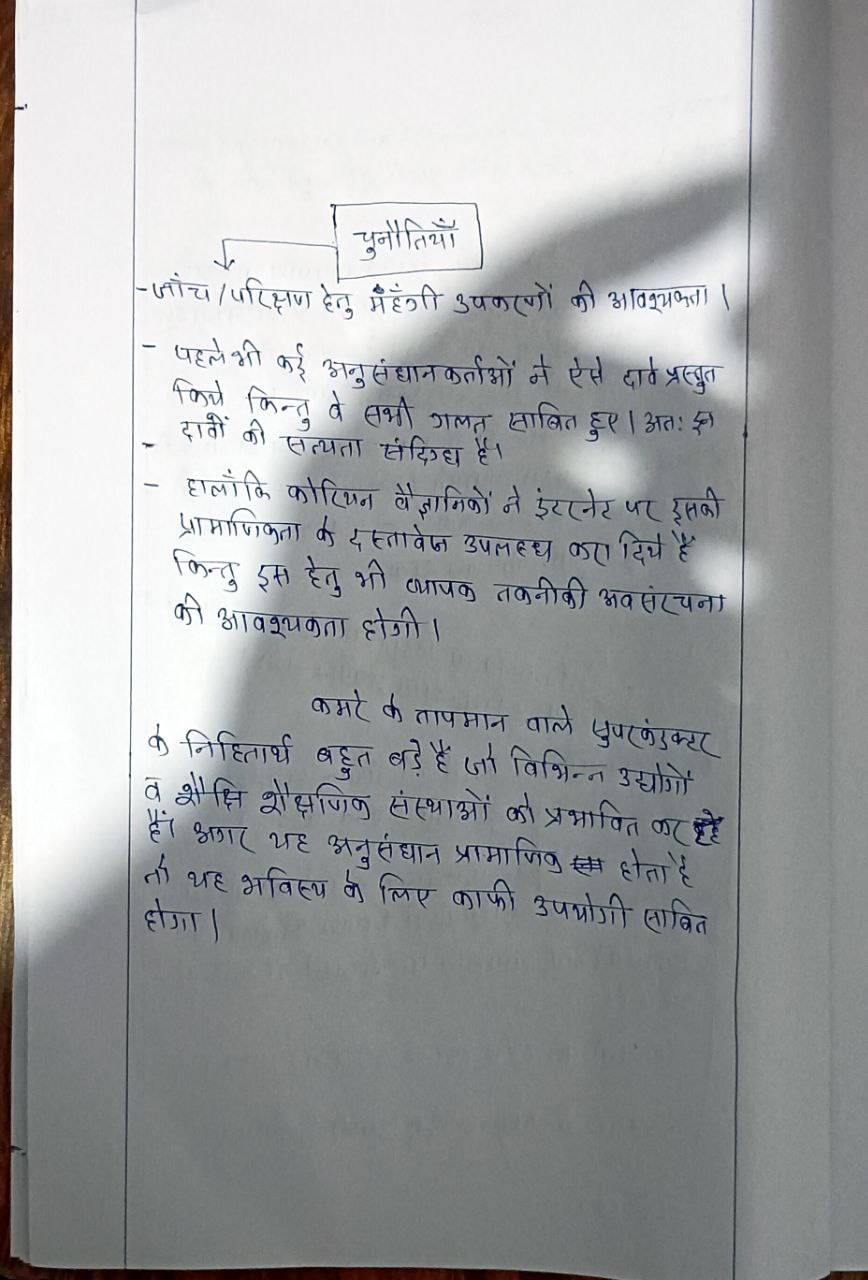 चुनौतियाँ
- जाँच / परिक्षण हेतु मँहगी उपकरणों की आवश्यकता ।
- पहले भी कई अनुसंधानकर्ताओं ने ऐसे दावे प्रस्तुत
किये किन्तु वे सभी गलत साबित हुए । अतः इन
- दावों की सत्यता संदिग्ध है।
- हालाँकि कोरियन वैज्ञानिकों ने इंटरनेट पर इसकी
प्रामाणिकता के दस्तावेज उपलब्ध करा दिये हैं
किन्तु इस हेतु भी व्यापक तकनीकी अवसंरचना
की आवश्यकता होगी ।
कमरे के तापमान वाले सुपरकंडक्टर
के निहितार्थ बहुत बड़े हैं जो विभिन्न उद्योगों
व शैक्षणिक संस्थाओं को प्रभावित कर
हैं। अगर यह अनुसंधान प्रामाणिक होता है
तो यह भविष्य के लिए काफी उपयोगी साबित
होगा ।